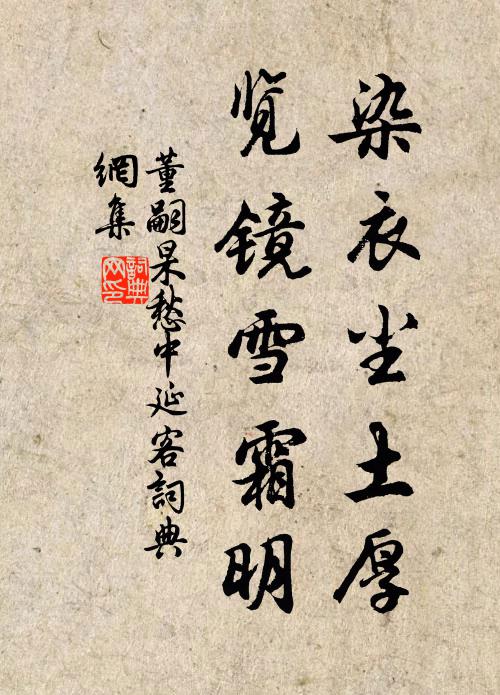 染衣尘土厚
览镜雪霜明
董嗣杲愁中延客詞典
網集
詞典网印